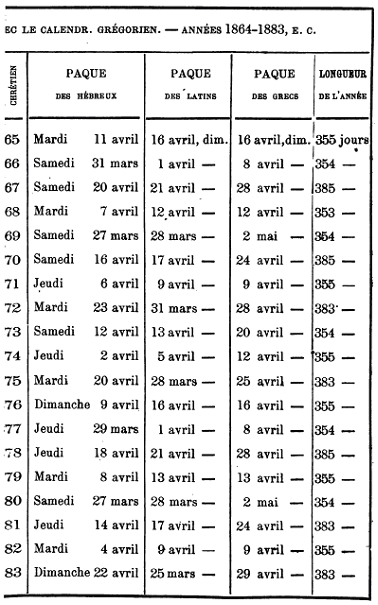 EC LE CALENDR. GRÉGORIEN. — ANNÉES 1864-1883, E. C.
CHRÉTIEN
PAQUE PAQUE PAQUE LONGUEUR
DES HÉBREUX DES LATINS DES GRECS DE L'ANNÉE
65 Mardi 11 avril 16 avril, dim. 16 avril, dim. 355 jours
66 Samedi 31 mars 1 avril — 8 avril — 354 —
67 Samedi 20 avril 21 avril — 28 avril — 385 —
68 Mardi 7 avril 12 avril — 12 avril — 353 —
69 Samedi 27 mars 28 mars — 2 mai — 354 —
70 Samedi 16 avril 17 avril — 24 avril — 385 —
71 Jeudi 6 avril 9 avril — 9 avril — 355 —
72 Mardi 23 avril 31 mars — 28 avril — 383 —
73 Samedi 12 avril 13 avril — 20 avril — 354 —
74 Jeudi 2 avril 5 avril — 12 avril — 355 —
75 Mardi 20 avril 28 mars — 25 avril — 383 —
76 Dimanche 9 avril 16 avril — 16 avril — 355 —
77 Jeudi 29 mars 1 avril — 8 avril — 354 —
78 Jeudi 18 avril 21 avril — 28 avril — 385 —
79 Mardi 8 avril 13 avril — 13 avril — 355 —
80 Samedi 27 mars 28 mars — 2 mai — 354 —
81 Jeudi 14 avril 17 avril — 24 avril — 383 —
82 Mardi 4 avril 9 avril — 9 avril — 355 —
83 Dimanche 22 avril 25 mars — 29 avril — 383 —